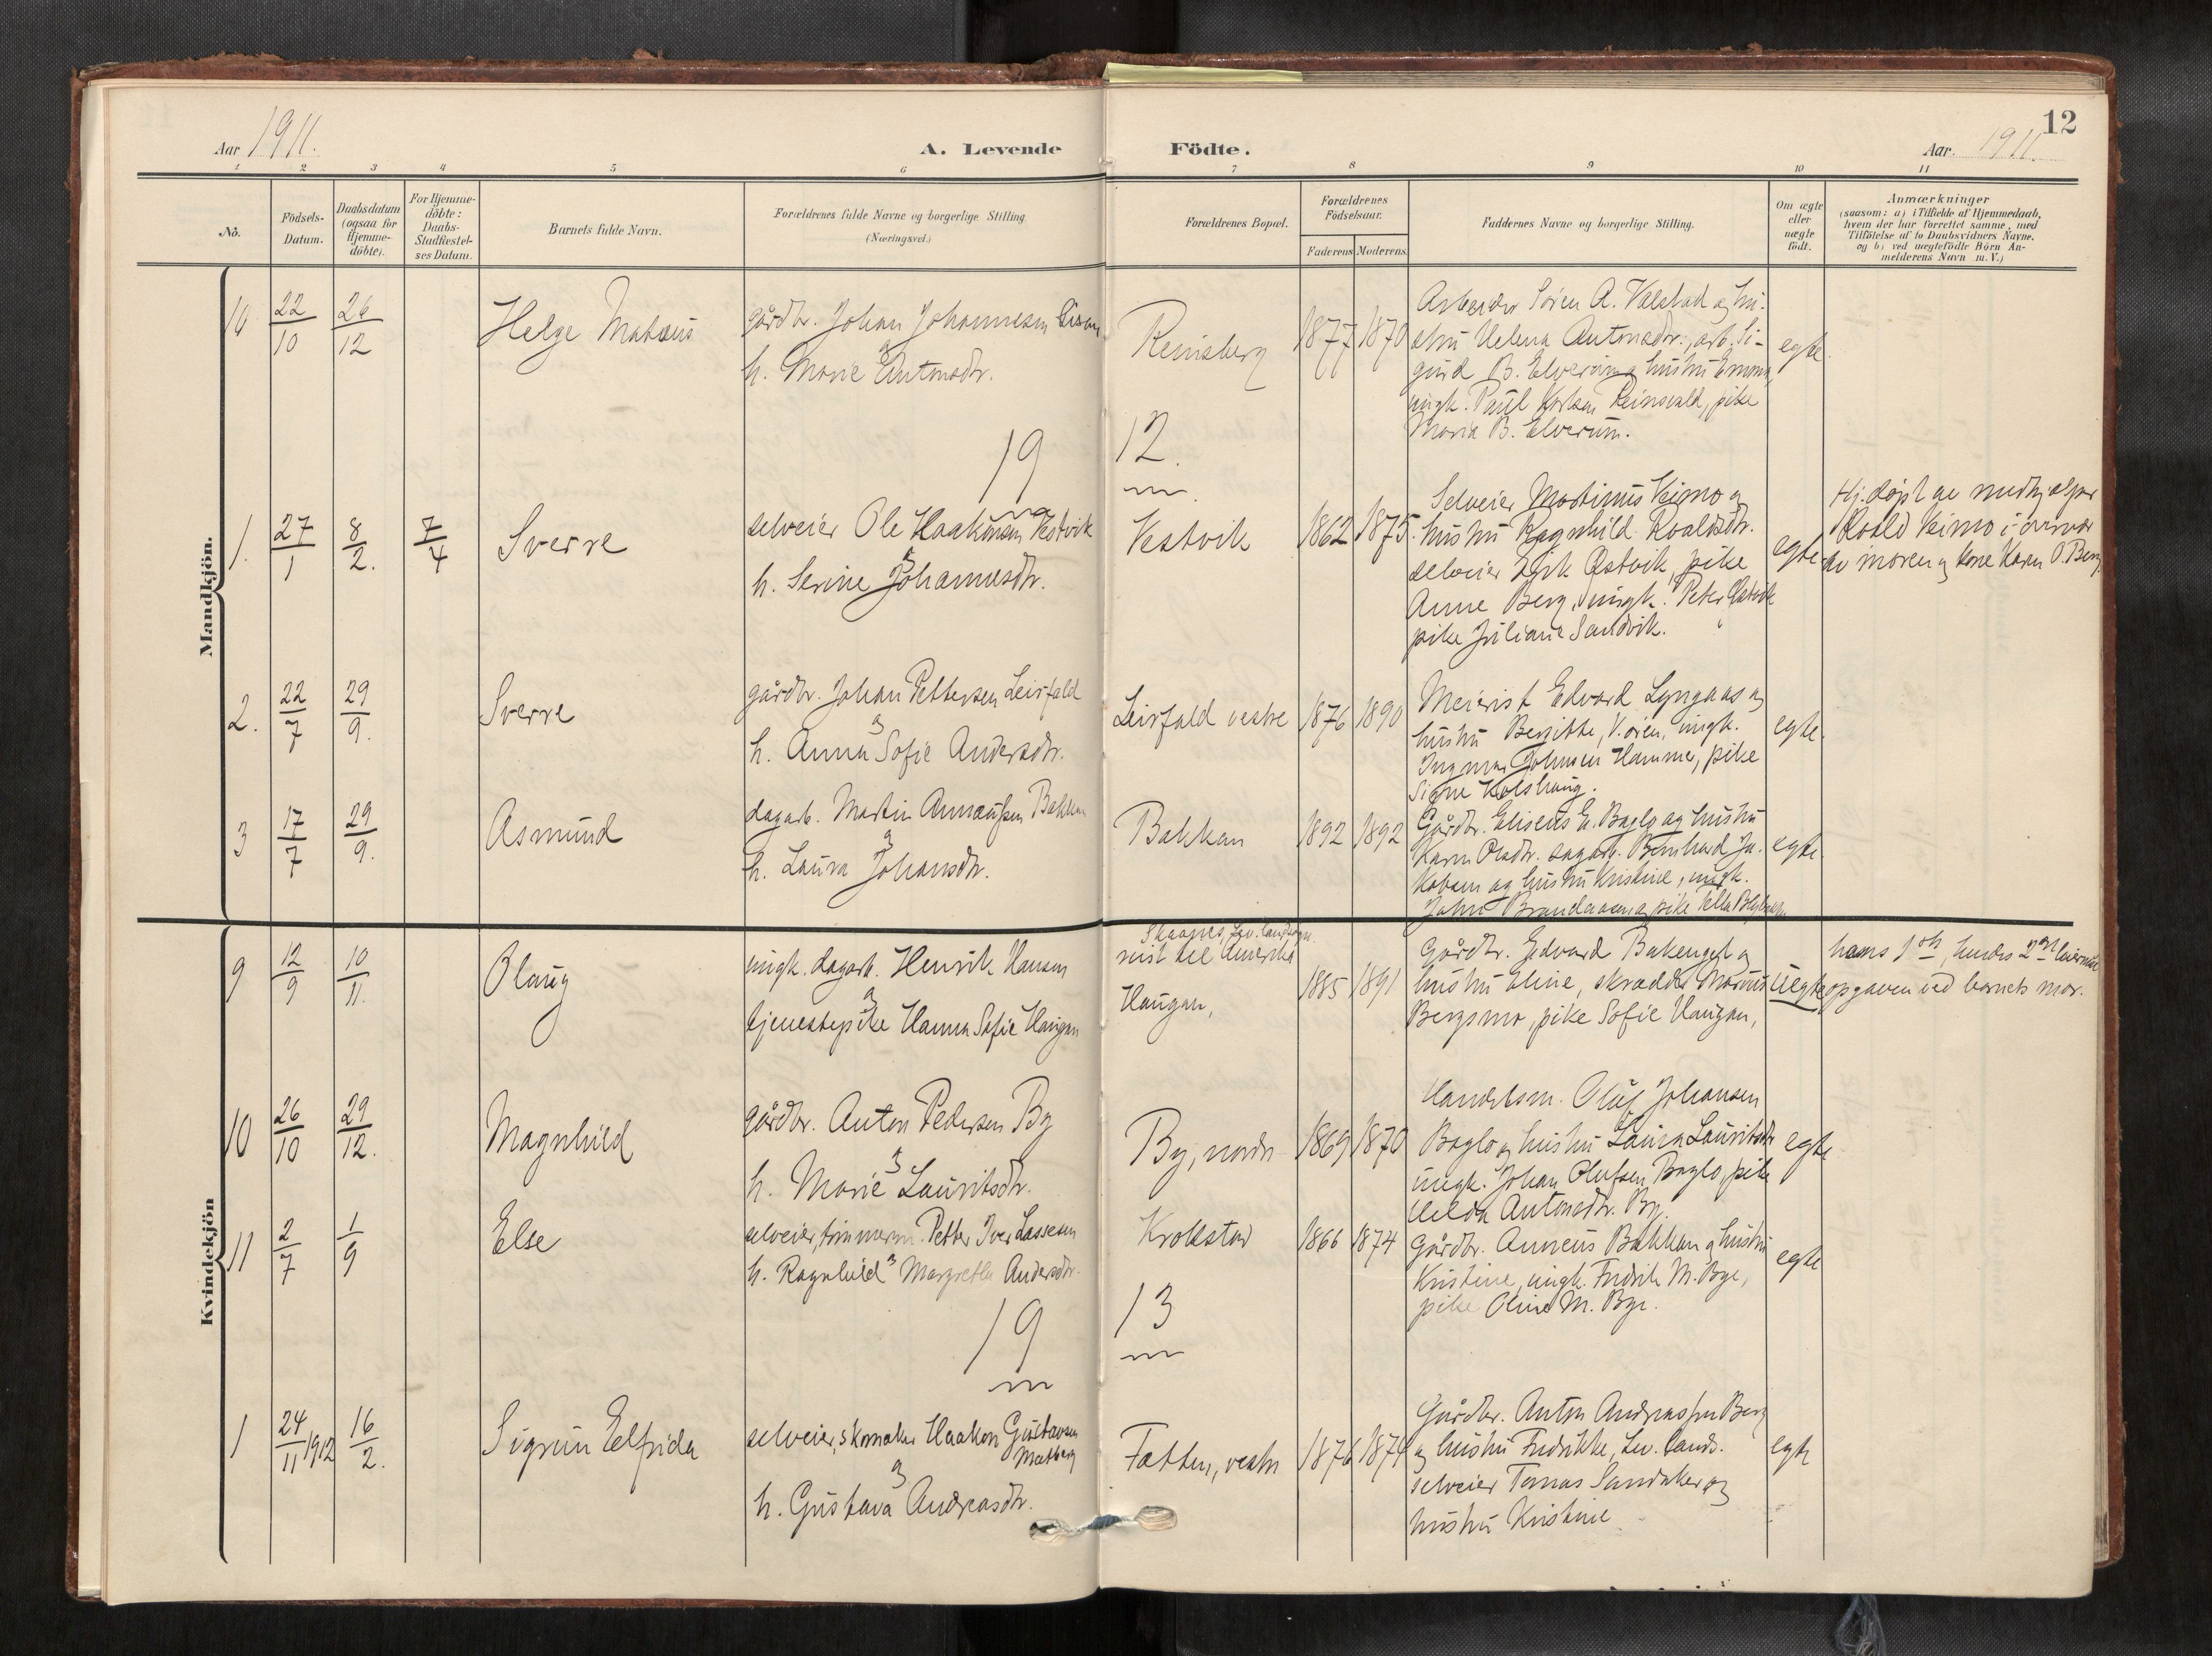 12
Aar 1911.
A. Levende Födte.
Aar. 1911
1 2 3 4 5 6 7 8 9 10 11
No.
Födsels-
Datum.
Daabsdatum
(ogsaa for
Hjemme-
döbte).
For Hjemme-
döbte:
Daabs-
Stadfæstel-
ses Datum.
Barnets fulde Navn.
Forældrenes fulde Navne og borgerlige Stilling.
(Næringsvei.)
Forældrenes Bopæl.
Forældrenes
Födselsaar.
Faderens Moderens
Faddernes Navne og borgerlige Stilling.
Om ægte
eller
uægte
födt.
Anmærkninger
(saasom: a) i Tilfælde af Hjemmedaab,
hvem der har forrettet samme, med
Tilföielse af to Daabsvidners Navne,
og b) ved uægtefödte Börn An-
melderens Navn m.V.)
Mandkjön.
22/10
26/12
Helge Matæus
gårdbr. Johan Johannesen
og
h. Marie Antonsdtr.
Reinsberg
1877 1870
Arbeider Sören A. Valstad og hu-
stru Helena Antonsdtr., arb. Si-
gurd B. Elverum og hustru Emma,
ungk. Paul Reinsvald, pike
Maria B. Elverum.
egte
19 12.
1.
27/1
8/2.
7/4
Sverre
selveier Ole Haakonsen Vestvik
og
h. Serine Johannesdtr.
Vestvik
1862 1875
Selveier Martinus Veimo og
hustru Ragnhild Roaldsdtr.
selveier Østvik, pike
Anne Berg, ungk. Peter Østvik
pike Juliane Sandvik.
egte
Hj. døpt av medhjelper
Roald Veimo i nærvær
av moren og kone Karen O. Berg
2.
22/7
29/9.
Sverre
gårdbr. Johan Pettersen Leirfald
og
h. Anna Sofie Andersdtr.
Leirfald vestre
1876 1890
Meierist Edvard Lyngaas og
hustru Bergitte, V.øien, ungk.
Ingmar Johnsen Hammer, pike
Signe Kolshaug.
egte
3
17/7
29/9.
Asmund
dagarb. Martin Annæussen Bakkan
og
h. Laura Johansdtr.
Bakkan
1892 1892
Gårdbr. Eliseus E. Baglo og hustru
Karen Olsdtr. dagarb. Bernhard Ja-
kobsen og hustru Kristine, ungk.
John og pike
egte
Kvindekjön
9
12/9
10/11.
Olaug
ungk. dagarb. Henrik Hansen
og
tjenestepike Hanna Sofie Haugan
Skaanes, Lev. landsogn.
reist til Amerika
Haugan,
1885 1891
Gårdbr. Edvard Bakengget og
hustru Oline, skrædder Marius
Bergsmo, pike Sofie Haugan,
Uegte
hans 1ste, hendes 2det leiermål
opgaven ved barnets mor.
10
26/10
29/12.
Magnhild
gårdbr. Anton Pedersen By
og
h. Marie Lauritsdtr.
By, nordre
1869 1870
Handelsm. Oluf Johansen
Baglo og hustru Laura Lauritsdtr
ungk. Johan Olufsen Baglo, pike
Helda Antonsdtr. By.
egte
11
2/7
1/9
Else
selveier, tömmerm. Petter Iver Lassesen
og
h. Ragnhild Margrethe Andersdtr.
Krokstad
1866 1874
Gårdbr. Anneus Bakkan og hustru
Kristine, ungk. Fredrik M. Bye,
pike Oline M. Bye.
egte
19 13
1
24/11 1912
16/2.
Sigrun Elfrida
selveier, skomaker Haakon Gustavsen
og
h. Gustava Andreasdtr.
Fætten, vestre
1876 1874
Gårdbr. Anton Andreassen Berg
og hustru Fredrikke, Lev. lands.
selveier Tomas Sandaker og
hustru Kristine
egte